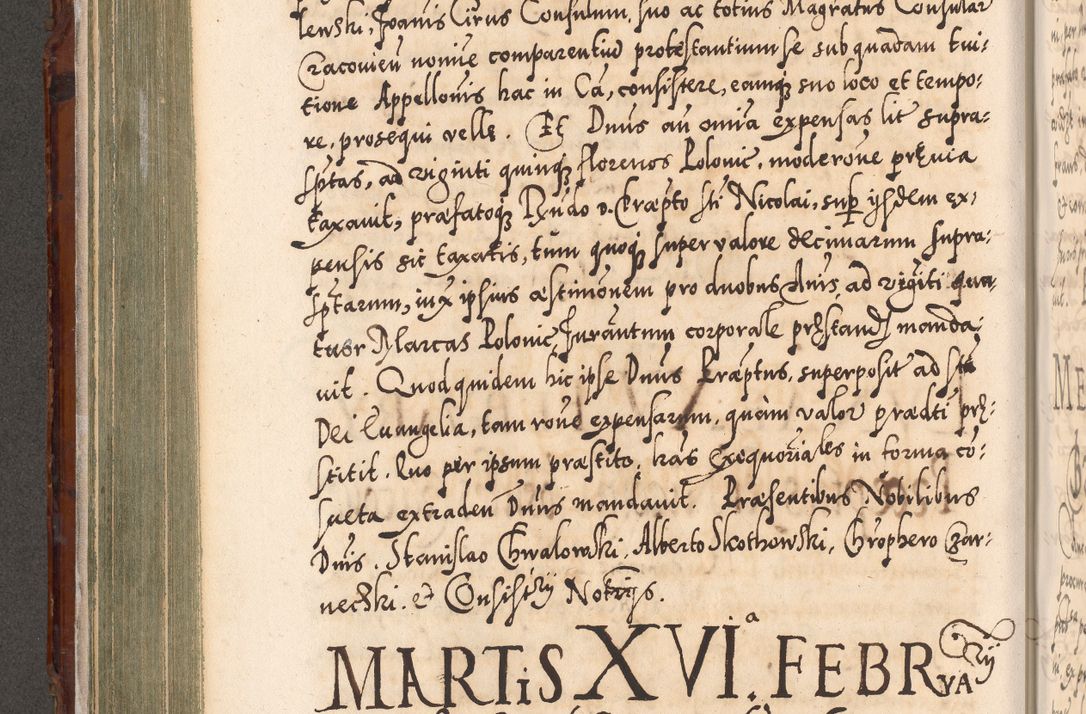 lewski, Joanis Cirus Consulum, suo ac totius Magratus Consular
Cracovien̄ nomine comparentiū protestantium se sub quadam tui-
tione Appellonis hac in Cā, consistere, eamq̨ suo loco et tempo-
re, prosequi velle. Et Dnus an̄ omia expensas lit supra-
sptas, ad viginti quinq̨ florenos Polonic. moderone prævia
taxavit, præfatoq̨ Rndo D. Præpto sti Nicolai, sup ijsdem ex-
pensis sic taxatis, tum quoq̨ super valore decimarum supra-
sptarum, iux ipsius æstimonem pro duobus Anis, ad vigiti qua-
tuor Marcas Polonic, Iurān̄tum corporale præstand manda-
vit. Quod quidem hic ipse Dnus Præptus, superposit ad sta
Dei Evangelia, tam rone expensarum, quàm valor prædti præ-
stitit. Quo per ipsum præstito, has Exequoriales in forma co-
sueta extraden̄ Dnus mandavit. Præsentibus Nobilibus
Dnis. Stanislao Chwalowski, Alberto Skothowski, Chrophero Czar-
necski. et Consistrij Notrijs.
MARTiS XVI.ª FEBRVARij